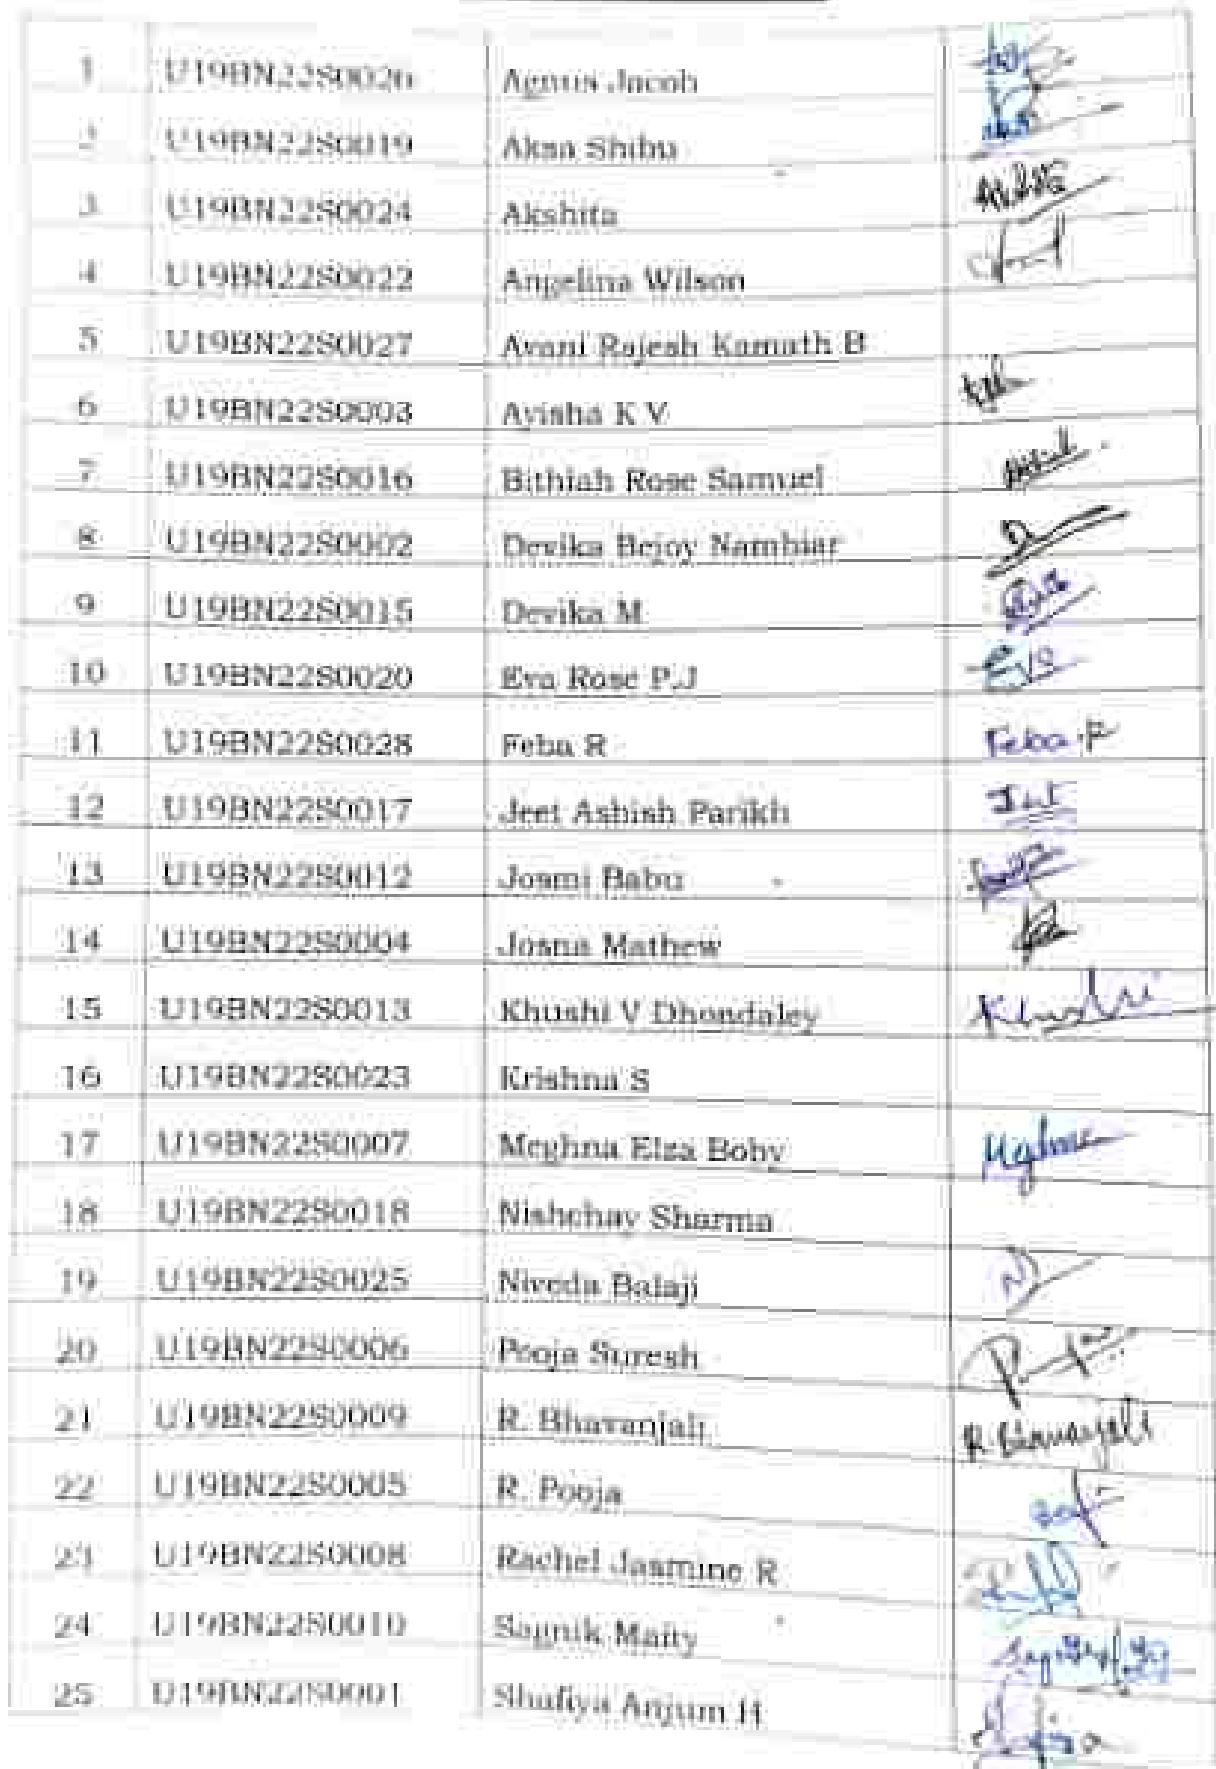 1 U19BN22S0026 Agnus Jacob
2 U19BN22S0019 Aksa Shibu
3 U19BN22S0024 Akshita
4 U19BN22S0022 Angelina Wilson
5 U19BN22S0027 Avani Rajesh Kamath B
6 U19BN22S0003 Ayisha K V
7 U19BN22S0016 Bithiah Rose Samuel
8 U19BN22S0002 Devika Bejoy Nambiar
9 U19BN22S0015 Devika M
10 U19BN22S0020 Eva Rose P.J Eva
11 U19BN22S0028 Feba R Feba.R
12 U19BN22S0017 Jeet Ashish Parikh
13 U19BN22S0012 Josmi Babu
14 U19BN22S0004 Josna Mathew
15 U19BN22S0013 Khushi V Dhondaley Khushi
16 U19BN22S0023 Krishna S
17 U19BN22S0007 Meghna Elza Boby
18 U19BN22S0018 Nishchay Sharma
19 U19BN22S0025 Niveda Balaji
20 U19BN22S0006 Pooja Suresh
21 U19BN22S0009 R. Bhavanjali R. Bhavanjali
22 U19BN22S0005 R. Pooja
23 U19BN22S0008 Rachel Jasmine R
24 U19BN22S0010 Sagnik Maity
25 U19BN22S0001 Shafiya Anjum H